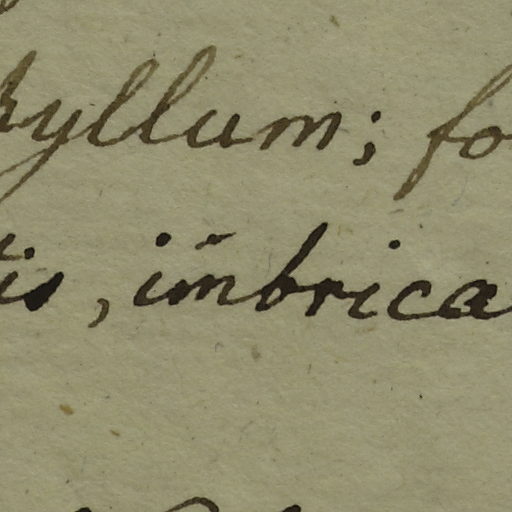 hyllum; fo
tis, imbrica